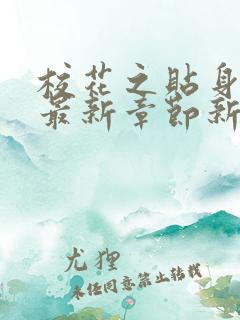 校花之贴身
最新章节新
尤狸
未经同意禁止转载